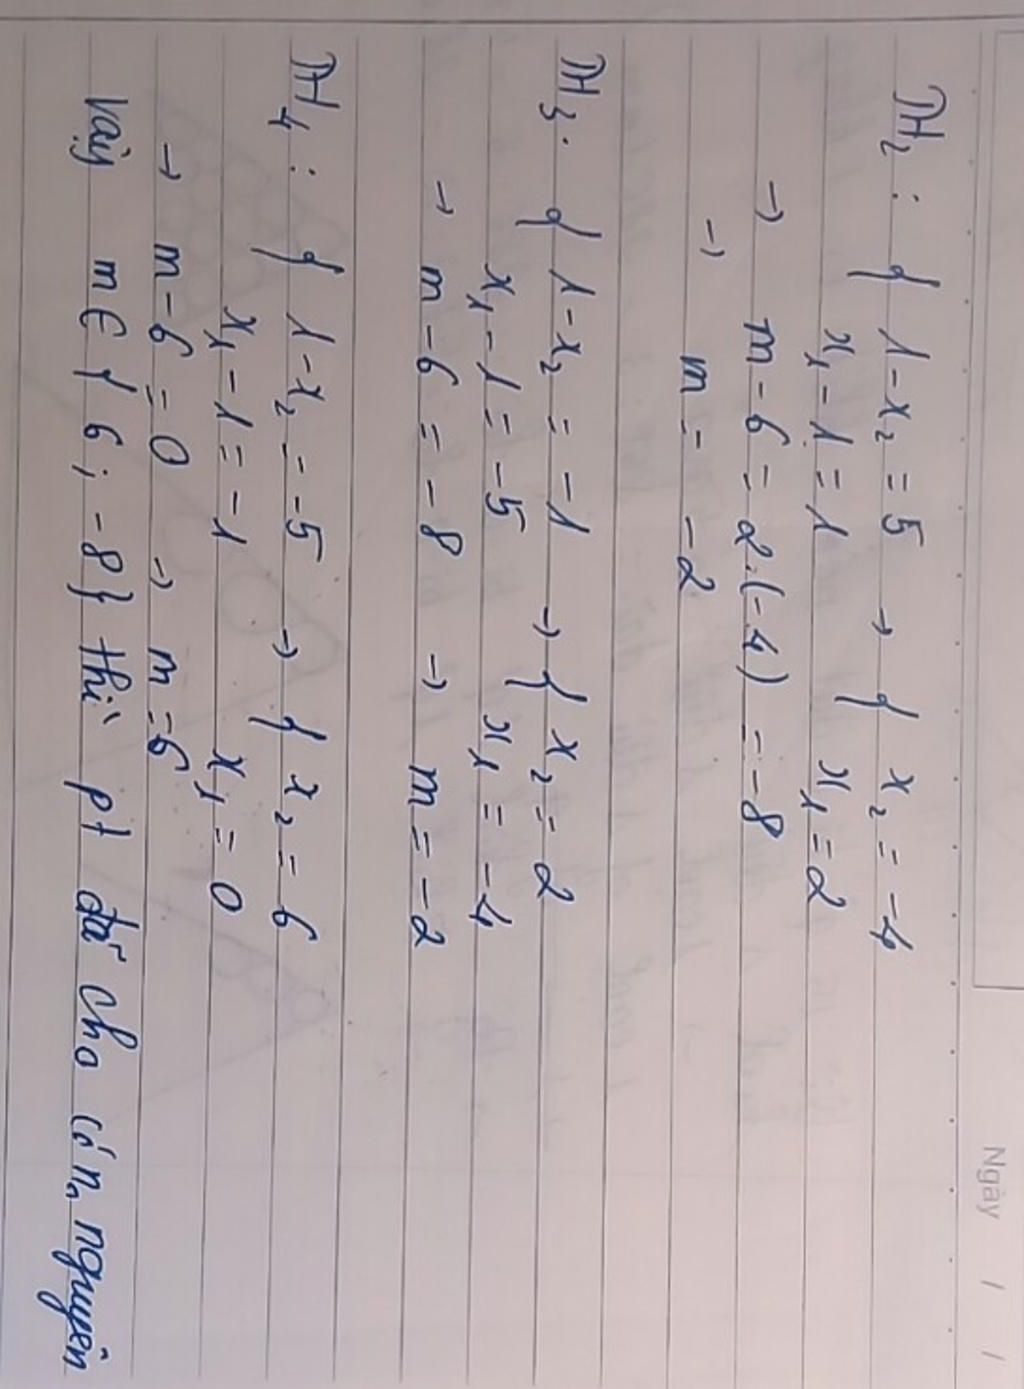 Ngày / /
TH2 : { 1 - x2 = 5 → { x2 = -4
x1 - 1 = 1 x1 = 2
→ m - 6 = 2.(-4) = -8
→ m = -2
TH3. { 1 - x2 = -1 → { x2 = 2
x1 - 1 = -5 x1 = -4
→ m - 6 = -8 → m = -2
TH4 : { 1 - x2 = -5 → { x2 = 6
x1 - 1 = -1 x1 = 0
→ m - 6 = 0 → m = 6
Vậy m ∈ { 6 ; -8} thì pt đã cho có n nguyên